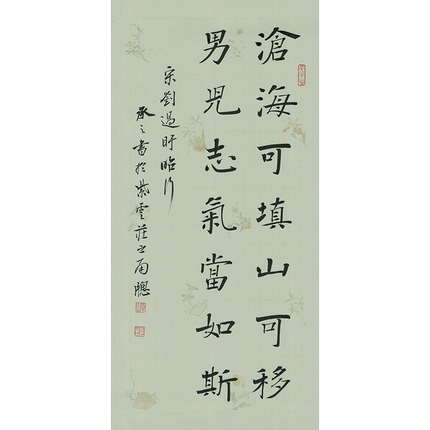 滄海可填山可移
男兒志氣當如斯
宋劉過盱眙行
承之書於紫雲莊之南牕